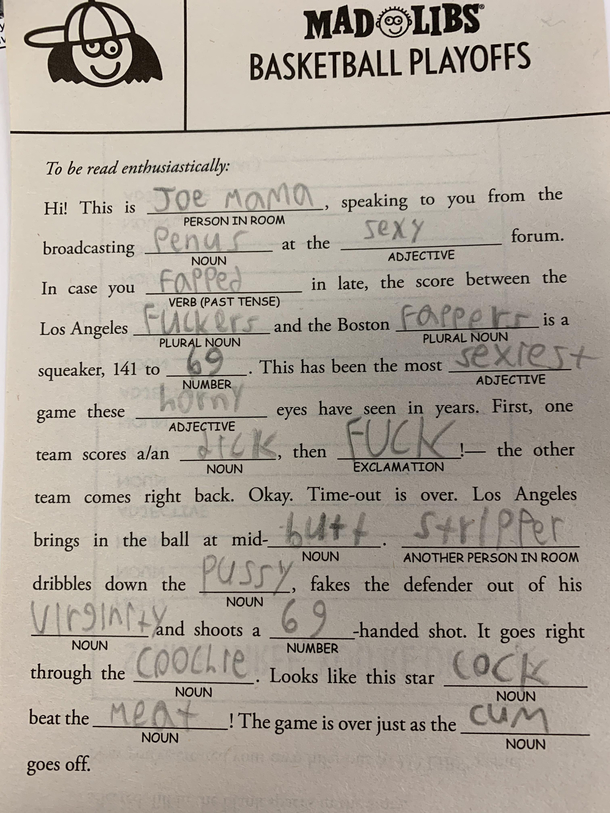 MAD LIBS®
BASKETBALL PLAYOFFS
To be read enthusiastically:
Hi! This is Joe mama, speaking to you from the
PERSON IN ROOM
broadcasting Penus at the sexy forum.
NOUN ADJECTIVE
In case you fapped in late, the score between the
VERB (PAST TENSE)
Los Angeles Fuckers and the Boston Fappers is a
PLURAL NOUN PLURAL NOUN
squeaker, 141 to 69. This has been the most sexiest
NUMBER ADJECTIVE
game these horny eyes have seen in years. First, one
ADJECTIVE
team scores a/an dick, then FUCK!— the other
NOUN EXCLAMATION
team comes right back. Okay. Time-out is over. Los Angeles
brings in the ball at mid-butt. Stripper
NOUN ANOTHER PERSON IN ROOM
dribbles down the pussy, fakes the defender out of his
NOUN
Virginity and shoots a 69-handed shot. It goes right
NOUN NUMBER
through the coochie. Looks like this star cock
NOUN NOUN
beat the meat! The game is over just as the cum
NOUN NOUN
goes off.